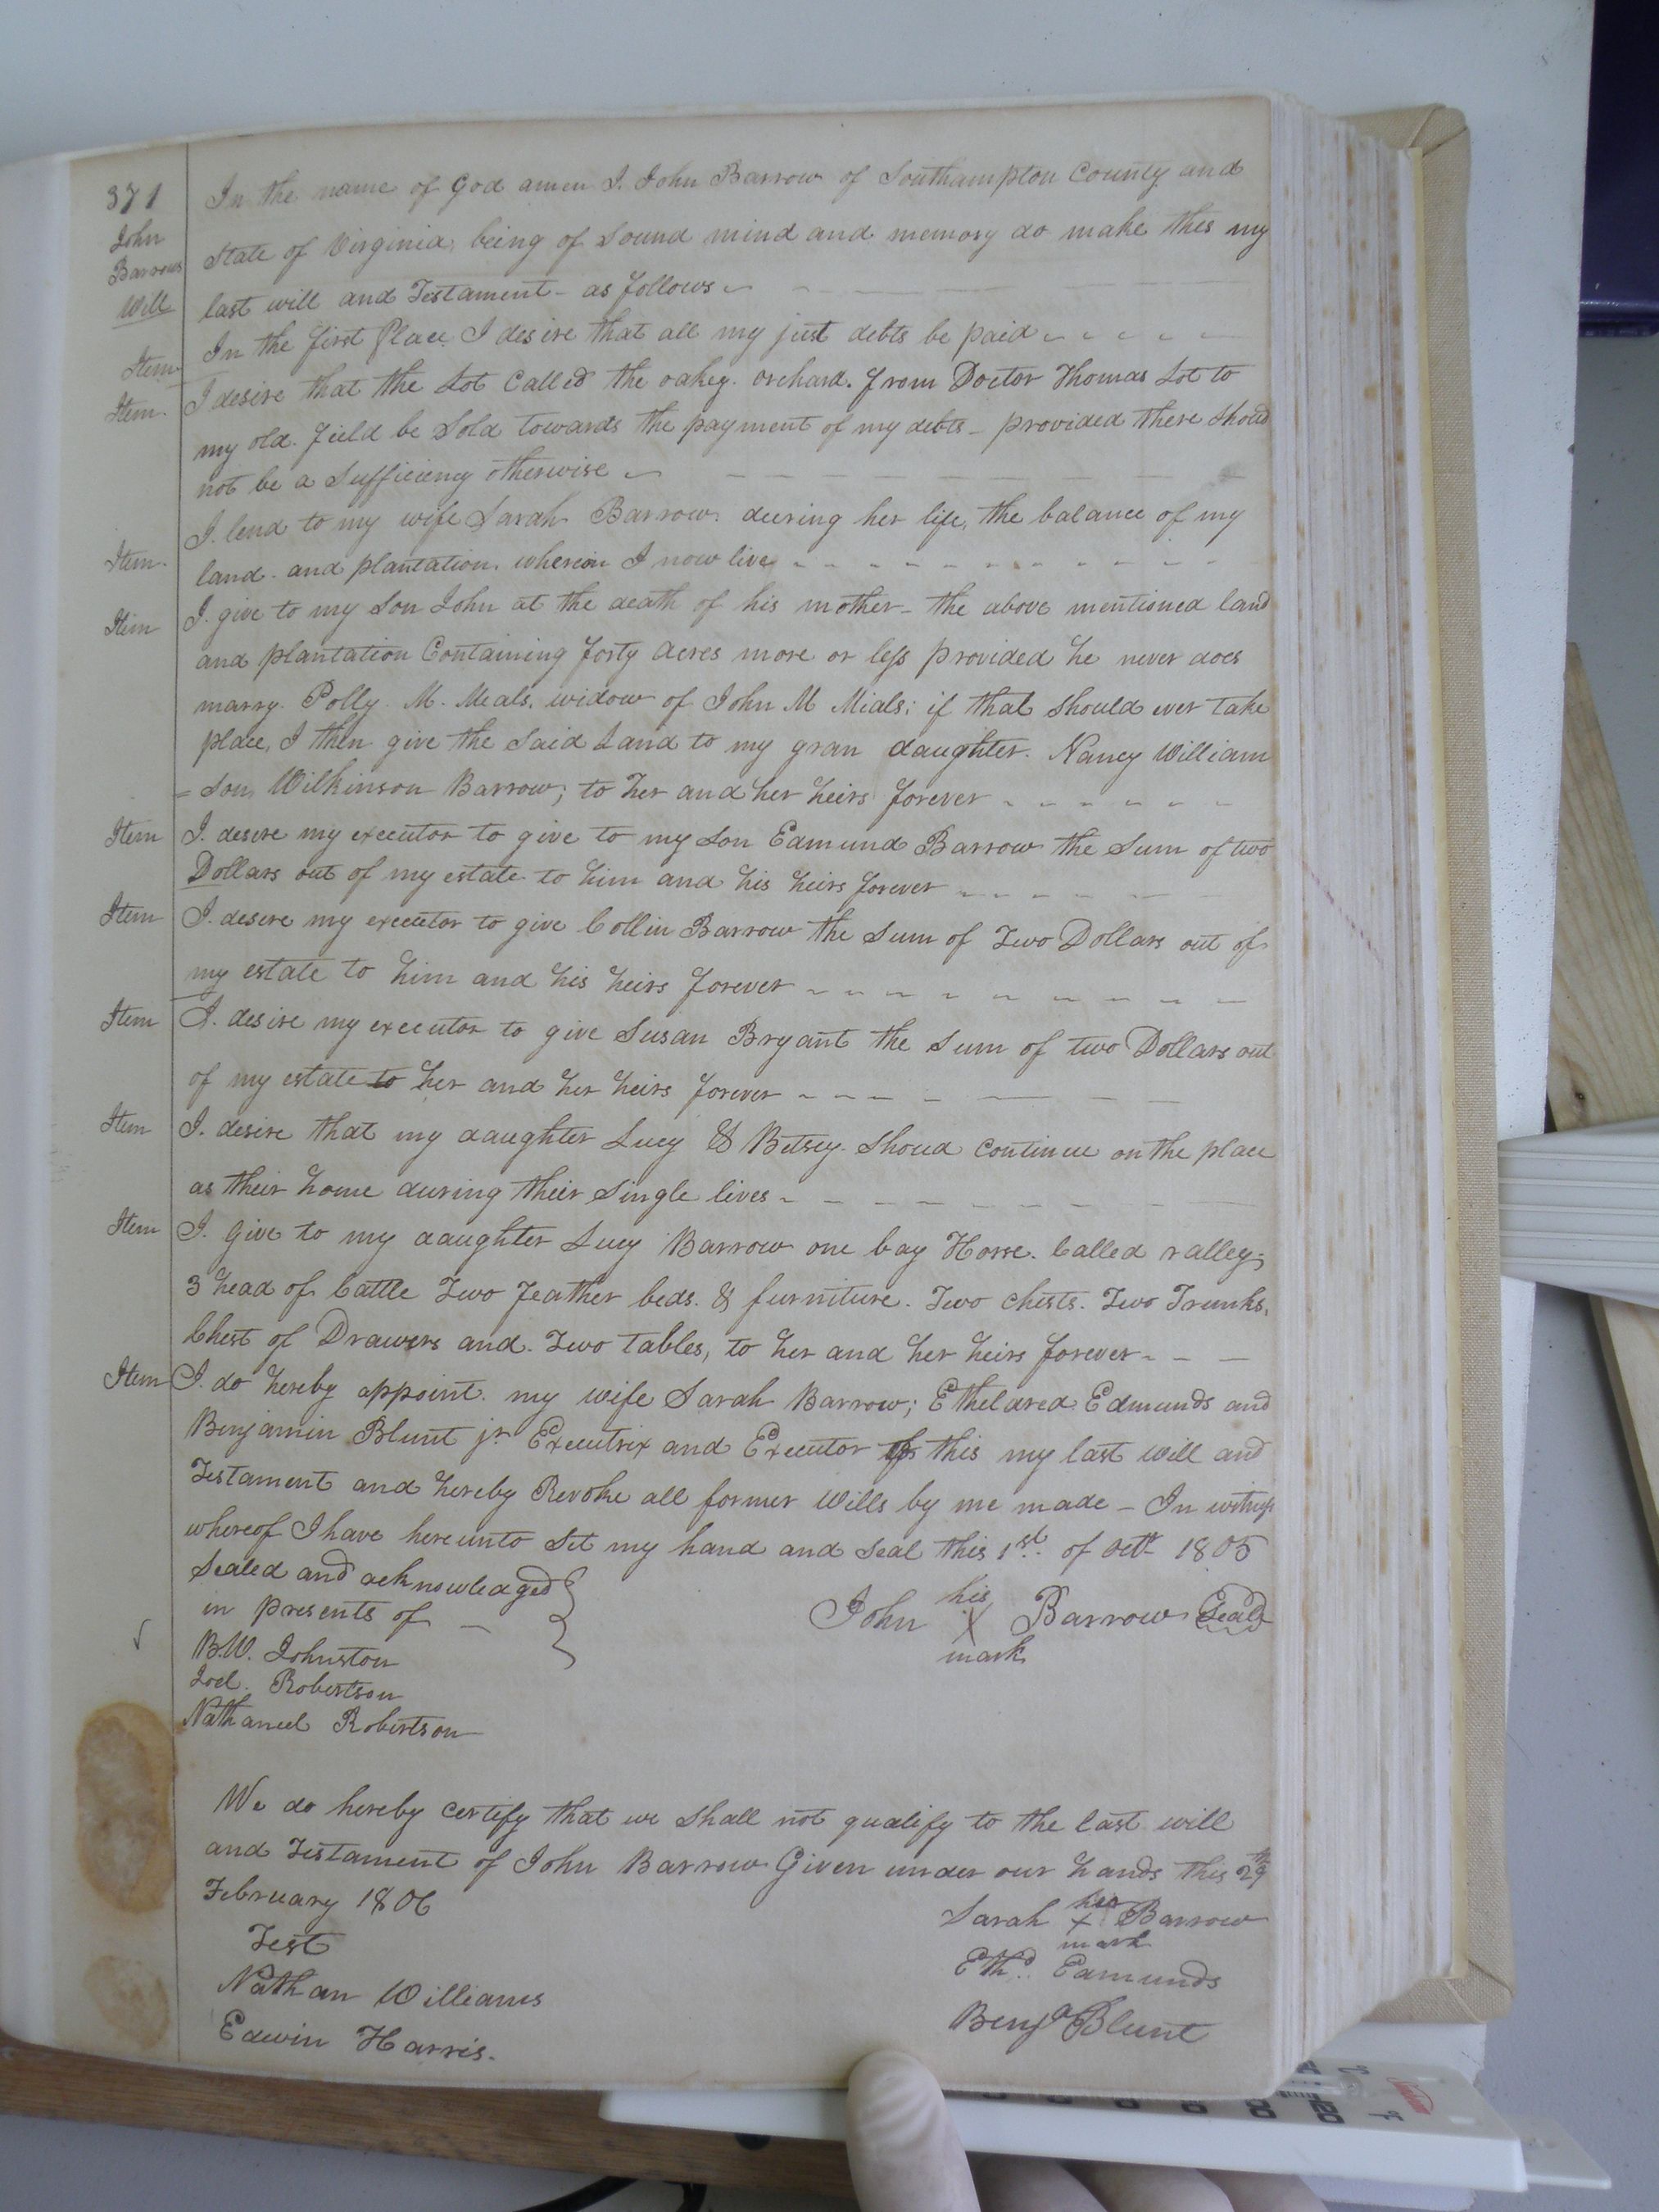 371
John
Barrows
Will
In the name of God amen I. John Barrow of Southampton County and
State of Virginia, being of Sound mind and memory do make this my
last will and Testament - as follows
Item
In the first Place I desire that all my just debts be paid
Item
I desire that the Lot Called the oakey orchard. from Doctor Thomas Lot to
my old. field be Sold towards the payment of my debts - provided there Should
not be a Sufficiency otherwise
Item
I. lend to my wife Sarah Barrow. during her life, the balance of my
land. and plantation. whereon I now live
Item
I. give to my Son John at the death of his mother - the above mentioned land
and plantation Containing forty acres more or less provided he never does
marry. Polly M. Meals. widow of John M Mials; if that Should ever take
place, I then give the Said Land to my gran daughter. Nancy William
= son Wilkinson Barrow; to her and her heirs forever
Item
I. desire my executor to give to my Son Edmund Barrow the Sum of two
Dollars out of my estate to him and his heirs forever
Item
I. desire my executor to give Collin Barrow the Sum of Two Dollars out of
my estate to him and his heirs forever
Item
I. desire my executor to give Susan Bryant the Sum of two Dollars out
of my estate to her and her heirs forever
Item
I. desire that my daughter Lucy & Betsey. Shoud Continue on the place
as their home during their Single lives
Item
I. Give to my daughter Lucy Barrow one bay Horse. Called ralley;
3 head of Cattle Two Feather beds. & furniture. Two Chests. Two Trunks,
Chest of Drawers and. Two tables, to her and her heirs forever
Item
I. do hereby appoint. my wife Sarah Barrow; Etheldred Edmunds and
Benjamin Blunt jr. Executrix and Executor of this my last will and
Testament and hereby Revoke all former Wills by me made - In witness
whereof I have hereunto Set my hand and Seal this 1st. of Octr 1805
Sealed and acknowledged
in presents of
his
John X Barrow Seal
mark
B.W. Johnston
Joel. Robertson
Nathaniel Robertson
We do hereby Certify that we Shall not qualify to the last will
and Testament of John Barrow Given under our hands this 29th
February 1806
her
Sarah X Barrow
mark
Test
Ethd. Edmunds
Nathan Williams
Benja Blunt
Edwin Harris.